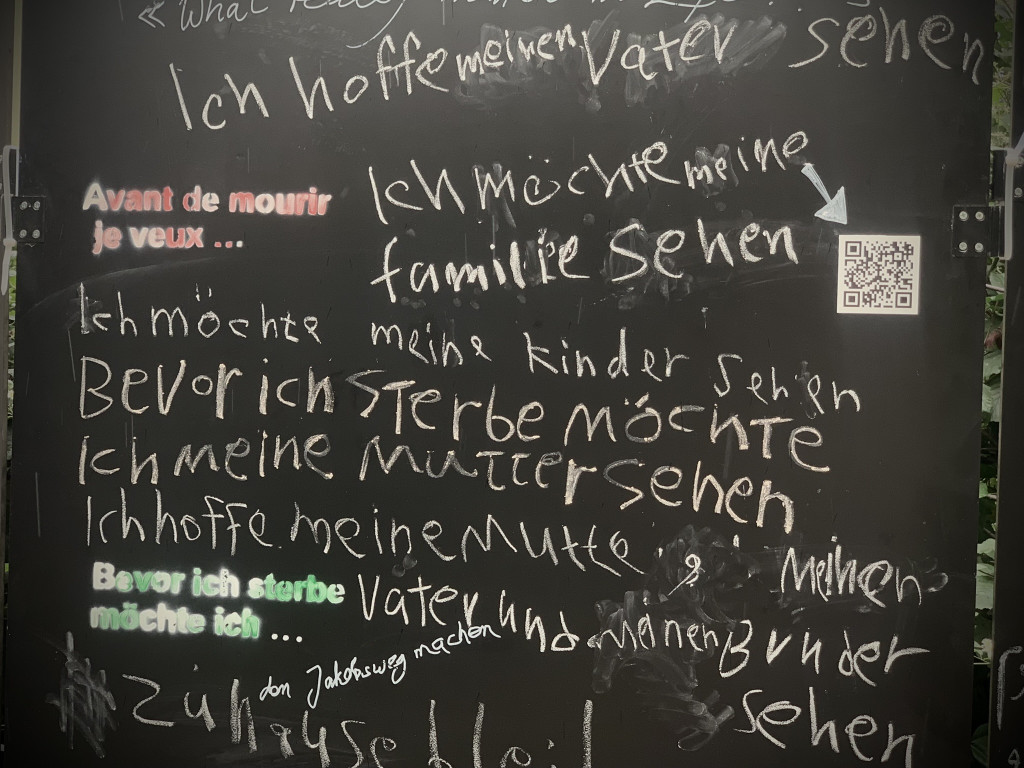 « What really
Ich hoffe meinen Vater sehen
Avant de mourir
je veux ...
Ich möchte meine
familie sehen
Ich möchte meine kinder sehen
Bevor ich sterbe möchte
Ich meine Mutter sehen
Ich hoffe meine Mutte & meinen
Vater und meinen Bruder
sehen
Bevor ich sterbe
möchte ich ...
den Jakobsweg machen
Zuhause